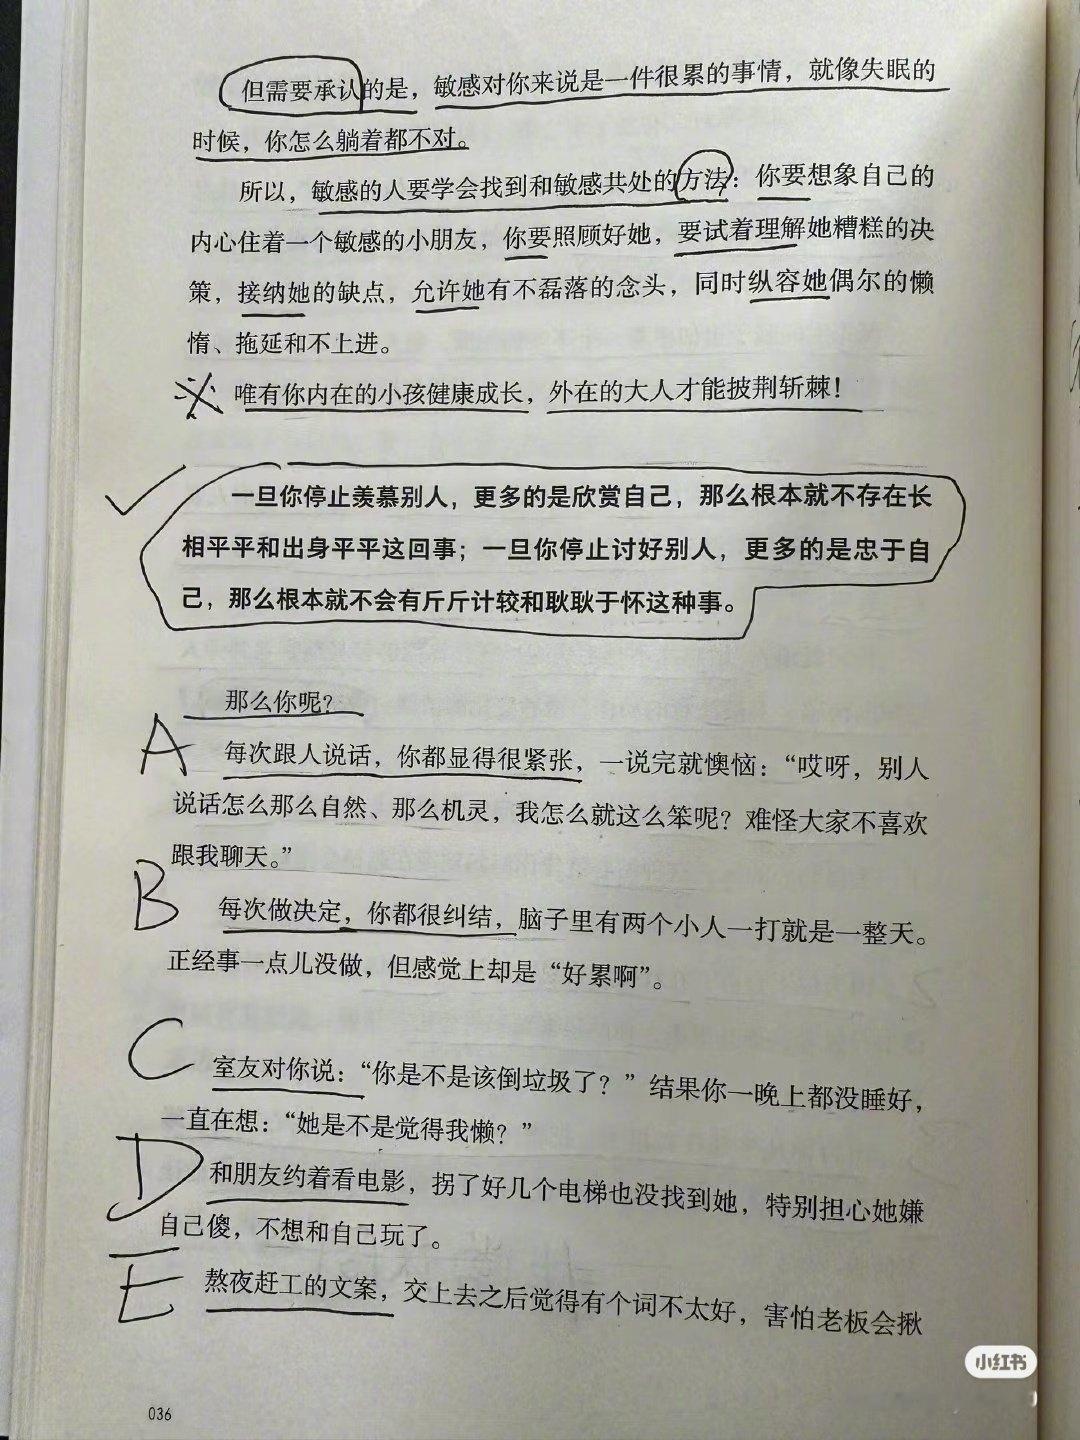 但需要承认的是，敏感对你来说是一件很累的事情，就像失眠的
时候，你怎么躺着都不对。
所以，敏感的人要学会找到和敏感共处的方法：你要想象自己的
内心住着一个敏感的小朋友，你要照顾好她，要试着理解她糟糕的决
策，接纳她的缺点，允许她有不磊落的念头，同时纵容她偶尔的懒
惰、拖延和不上进。
唯有你内在的小孩健康成长，外在的大人才能披荆斩棘！
一旦你停止羡慕别人，更多的是欣赏自己，那么根本就不存在长
相平平和出身平平这回事；一旦你停止讨好别人，更多的是忠于自
己，那么根本就不会有斤斤计较和耿耿于怀这种事。
那么你呢？
A
每次跟人说话，你都显得很紧张，一说完就懊恼：“哎呀，别人
说话怎么那么自然、那么机灵，我怎么就这么笨呢？难怪大家不喜欢
跟我聊天。”
B
每次做决定，你都很纠结，脑子里有两个小人一打就是一整天。
正经事一点儿没做，但感觉上却是“好累啊”。
C
室友对你说：“你是不是该倒垃圾了？”结果你一晚上都没睡好，
一直在想：“她是不是觉得我懒？”
D
和朋友约着看电影，拐了好几个电梯也没找到她，特别担心她嫌
自己傻，不想和自己玩了。
E
熬夜赶工的文案，交上去之后觉得有个词不太好，害怕老板会揪
036
小红书